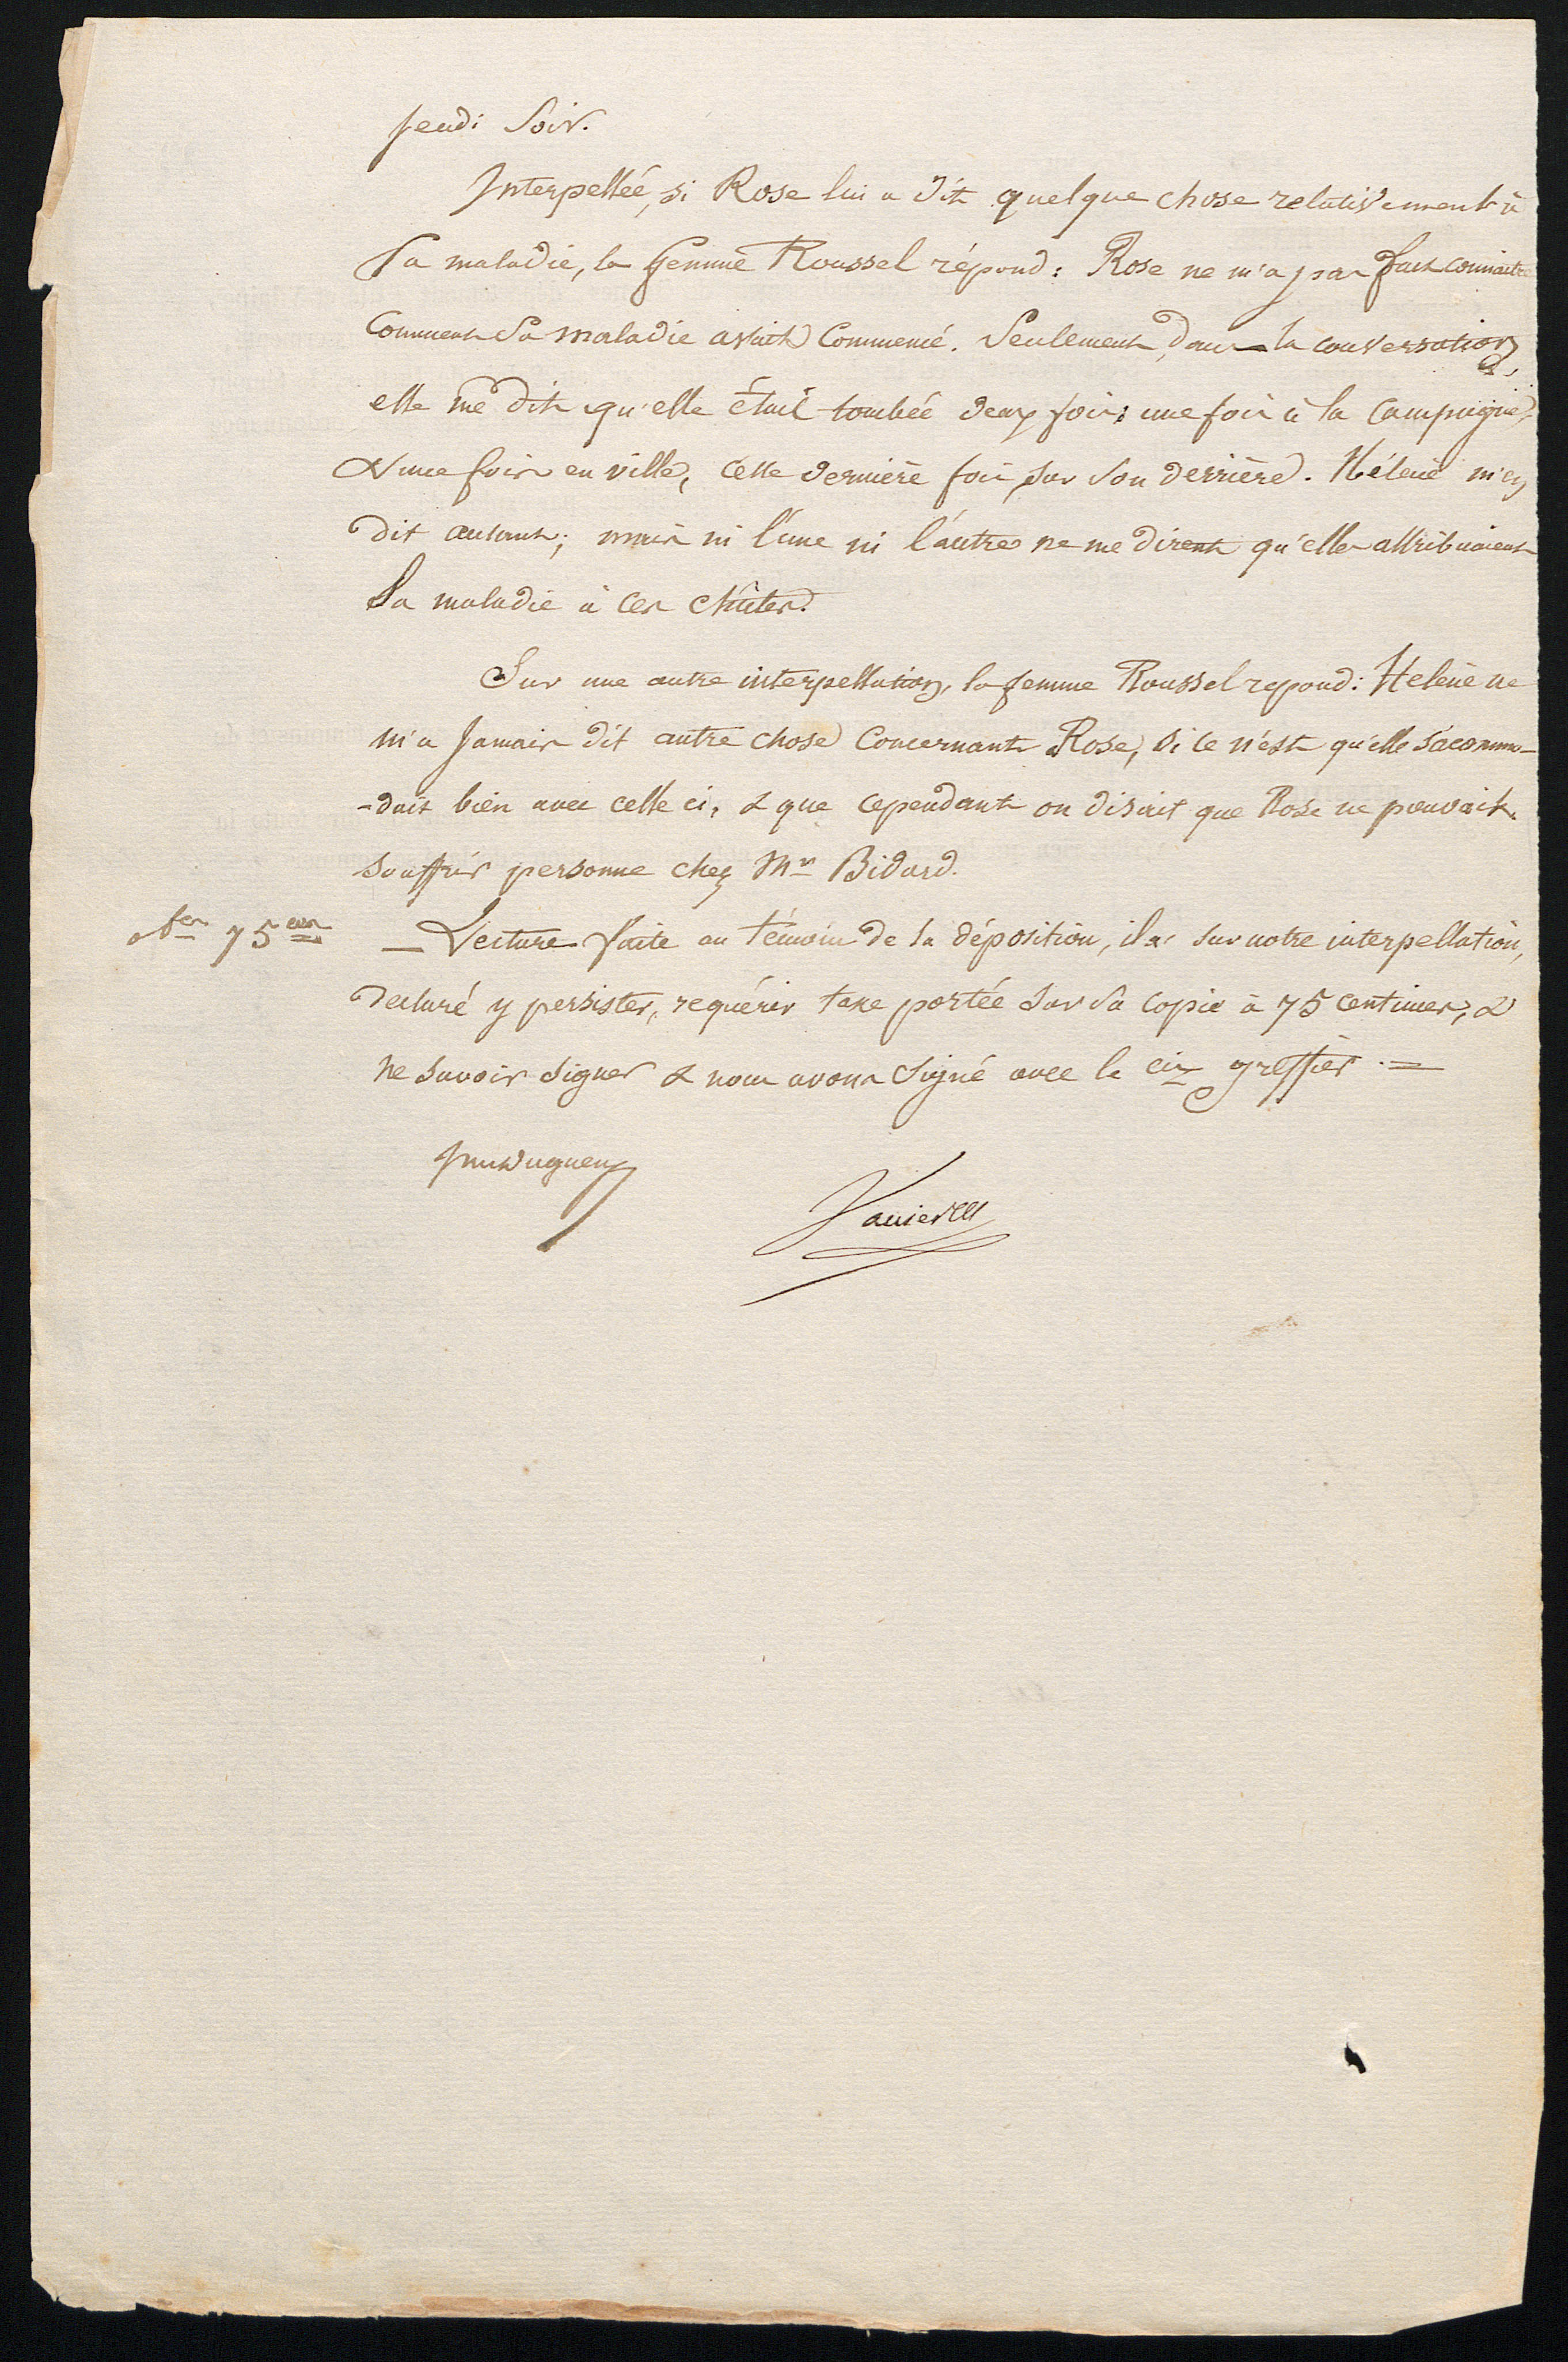 Jeudi Soir.
Interpellée, si Rose lui a dit quelque chose relativement à
Sa maladie, la femme Roussel répond : Rose ne m'a pas fait connaitre
Comment Sa maladie avait Commencé. Seulement, dans la conversation,
elle me dit qu'elle était tombée deux fois : une fois à la Campagne,
& une fois en ville, cette dernière fois, sur son derrière. Hélène m'en
dit autant; mais ni l'une ni l'autre ne me dirent qu'elles attribuaient
Sa maladie à ces chûtes.
Sur une autre interpellation, la femme Roussel repond : Helène ne
m'a Jamais dit autre chose Concernant Rose, Si ce n'est qu'elle s'acommo-
-dait bien avec celle ci, & que cependant on disait que Rose ne pouvait
souffrir personne chez Mr Bidard.
75 ces
— Lecture faite au témoin de sa déposition, il a, sur notre interpellation,
declaré y persister, requérir taxe portée sur sa copie à 75 centimes, &
ne savoir signer & nous avons Signé avec le greffier . =